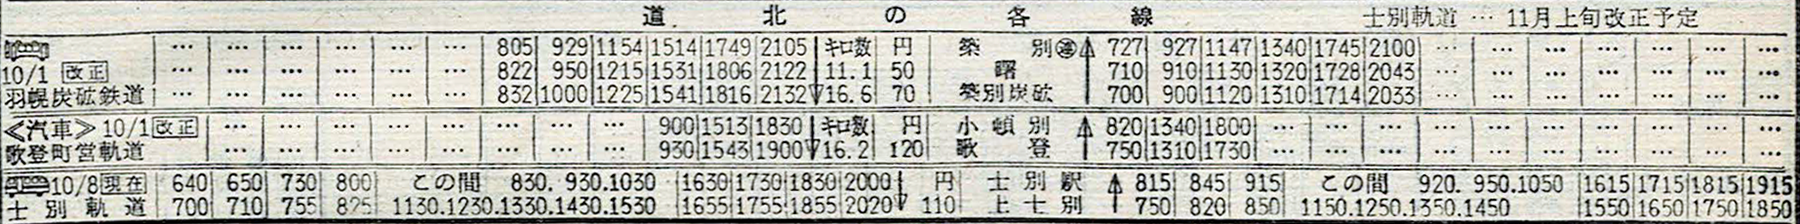 道北の各線 士別軌道 … 11月上旬改正予定
… … … … … … 805 929 1154 1514 1749 2105 キロ数 円 築別 727 927 1147 1340 1745 2100 … … … … … … …
10/1 改正 … … … … … … 822 950 1215 1531 1806 2122 11.1 50 曙 710 910 1130 1320 1728 2043 … … … … … … …
羽幌炭砿鉄道 … … … … … … 832 1000 1225 1541 1816 2132 16.6 70 築別炭砿 700 900 1120 1310 1714 2033 … … … … … … …
≪汽車≫ 10/1 改正 … … … … … … … … 900 1513 1830 キロ数 円 小頓別 820 1340 1800 … … … … … … … … … …
歌登町営軌道 … … … … … … … … 930 1543 1900 16.2 120 歌登 750 1310 1730 … … … … … … … … … …
10/8 現在 640 650 730 800 この間 830. 930.1030 1630 1730 1830 2000 円 士別駅 815 845 915 この間 920. 950.1050 1615 1715 1815 1915
士別軌道 700 710 755 825 1130.1230.1330.1430.1530 1655 1755 1855 2020 110 上士別 750 820 850 1150.1250.1350.1450 1550 1650 1750 1850